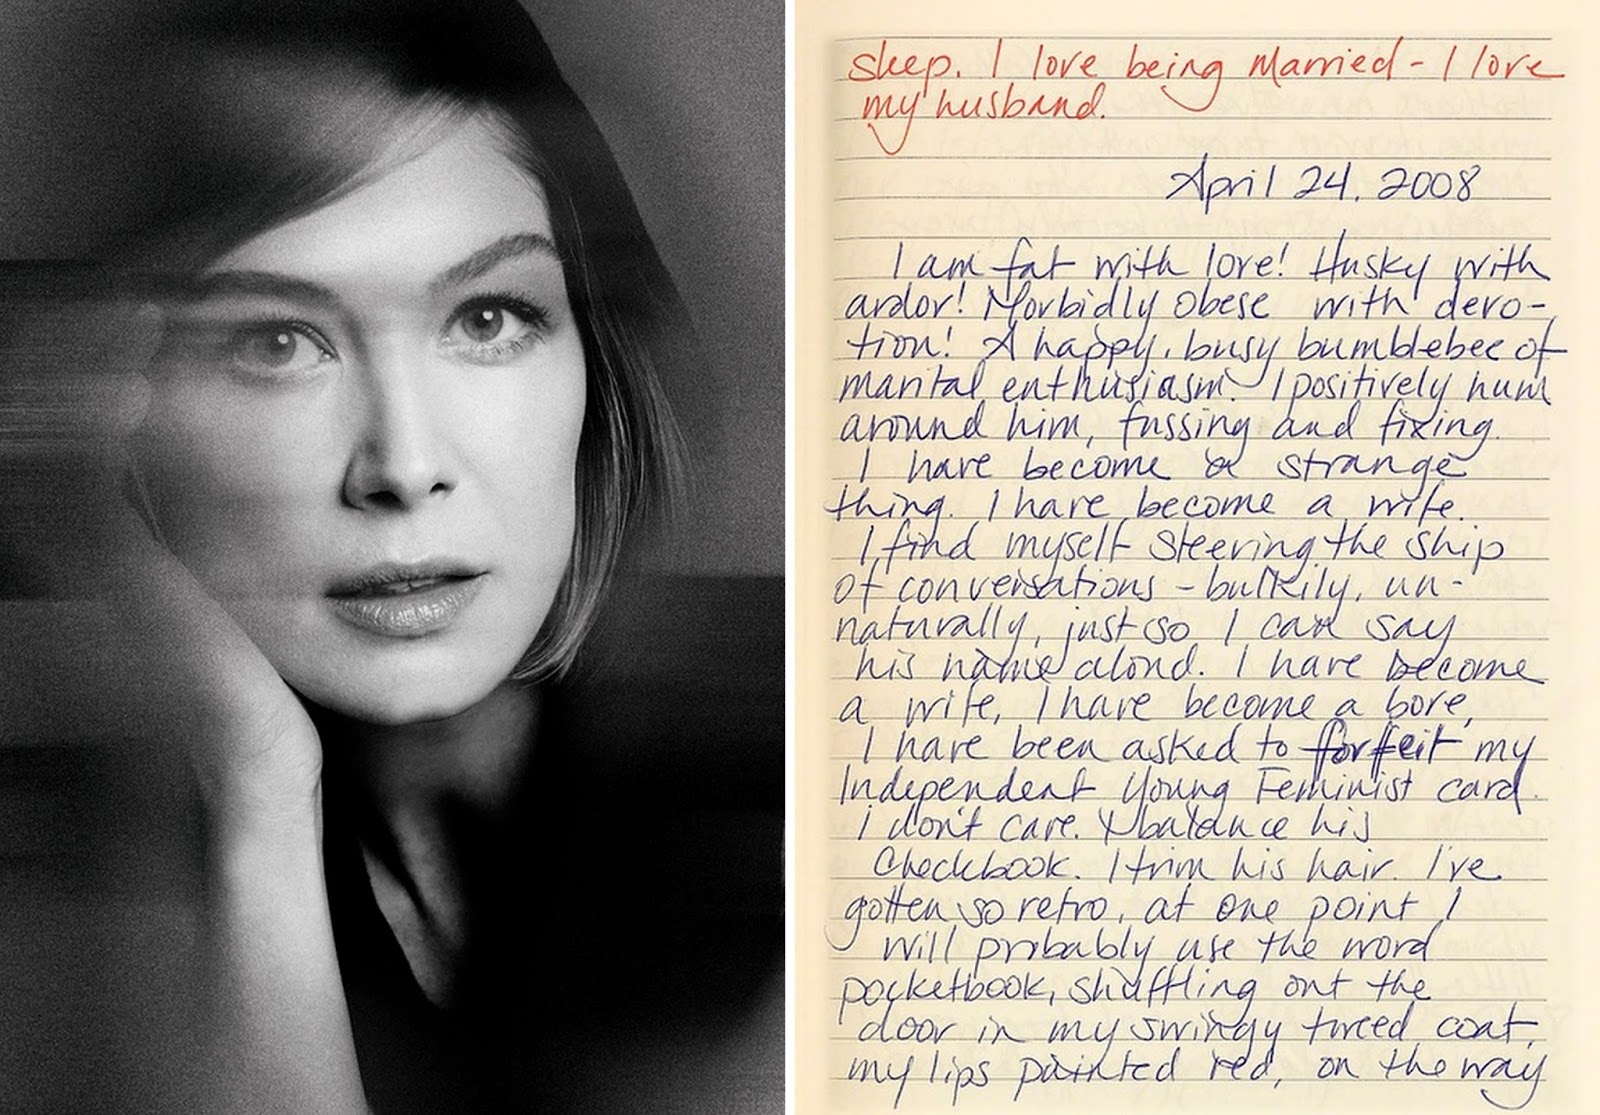 sleep. I love being married - I love
my husband.
April 24, 2008
I am fat with love! Husky with
ardor! Morbidly obese with devo-
tion! A happy, busy bumblebee of
marital enthusiasm. I positively hum
around him, fussing and fixing.
I have become a strange
thing. I have become a wife.
I find myself steering the ship
of conversations - bulkily, un-
naturally, just so I can say
his name aloud. I have become
a wife, I have become a bore,
I have been asked to forfeit my
Independent Young Feminist card.
I don't care. I balance his
checkbook. I trim his hair. I've
gotten so retro, at one point I
will probably use the word
pocketbook, shuffling out the
door in my swingy tweed coat,
my lips painted red, on the way